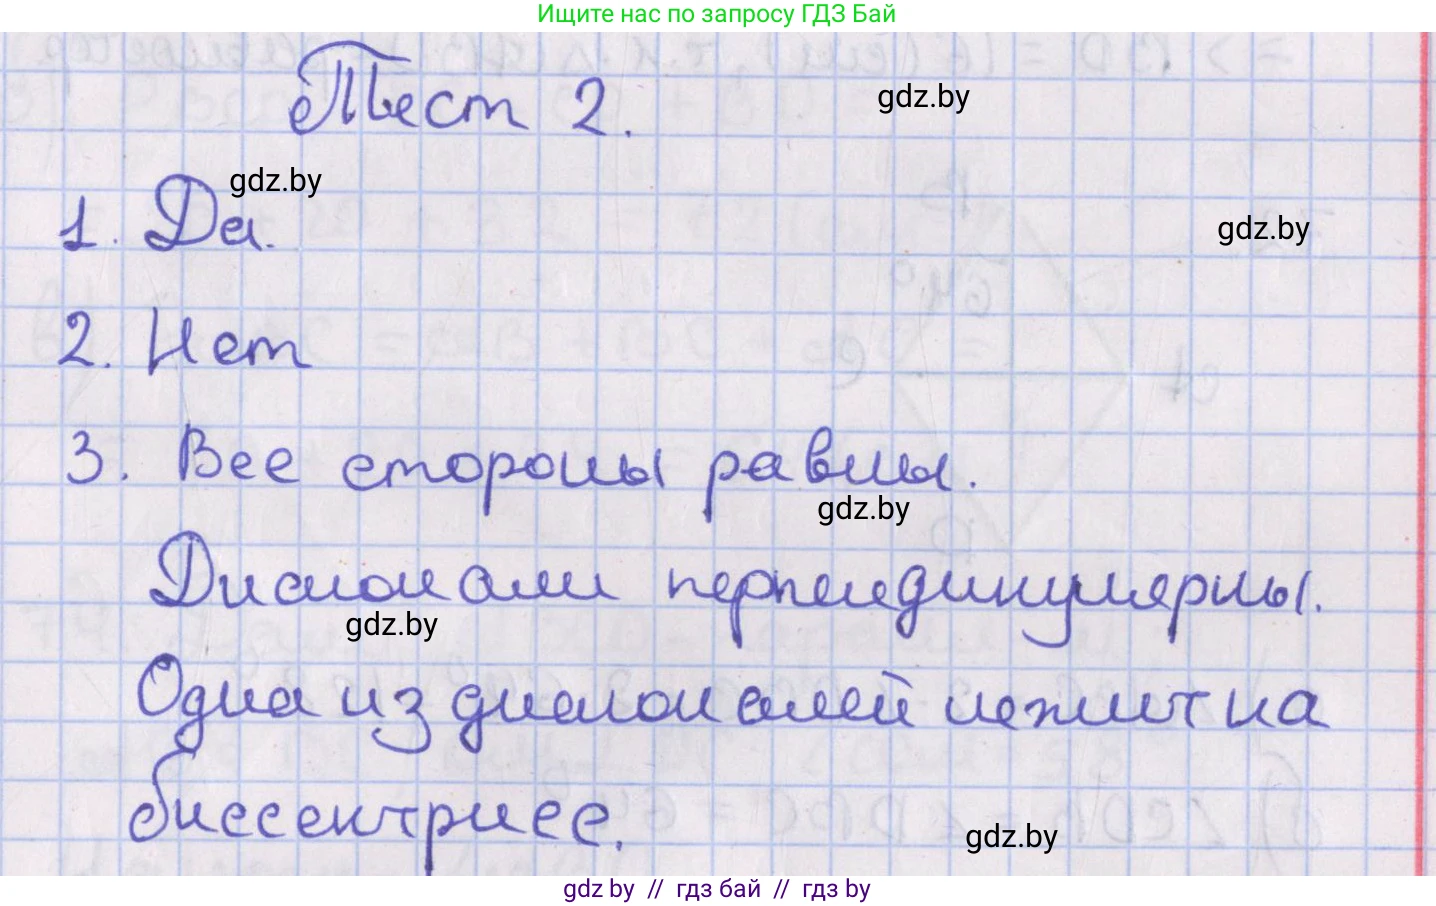 Ищите нас по запросу ГДЗ Бай
Тест 2.
gdz.by
gdz.by
1. Да.
gdz.by
2. Нет
3. Все стороны равны.
gdz.by
Диагонали перпендикулярны.
gdz.by
Одна из диагоналей лежит на
биссектрисе.
gdz.by
gdz by // гдз бай // гдз by